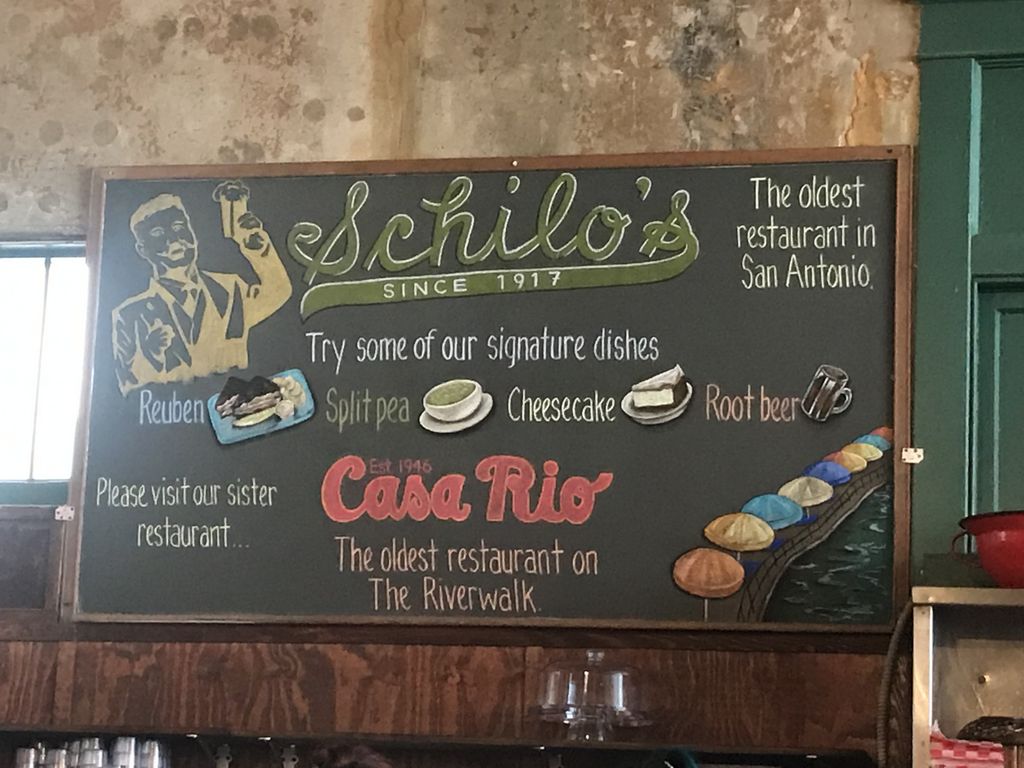 Schilo's
SINCE 1917
The oldest
restaurant in
San Antonio.
Try some of our signature dishes
Reuben Split pea Cheesecake Root beer
Please visit our sister
restaurant...
Est 1946
Casa Rio
The oldest restaurant on
The Riverwalk.